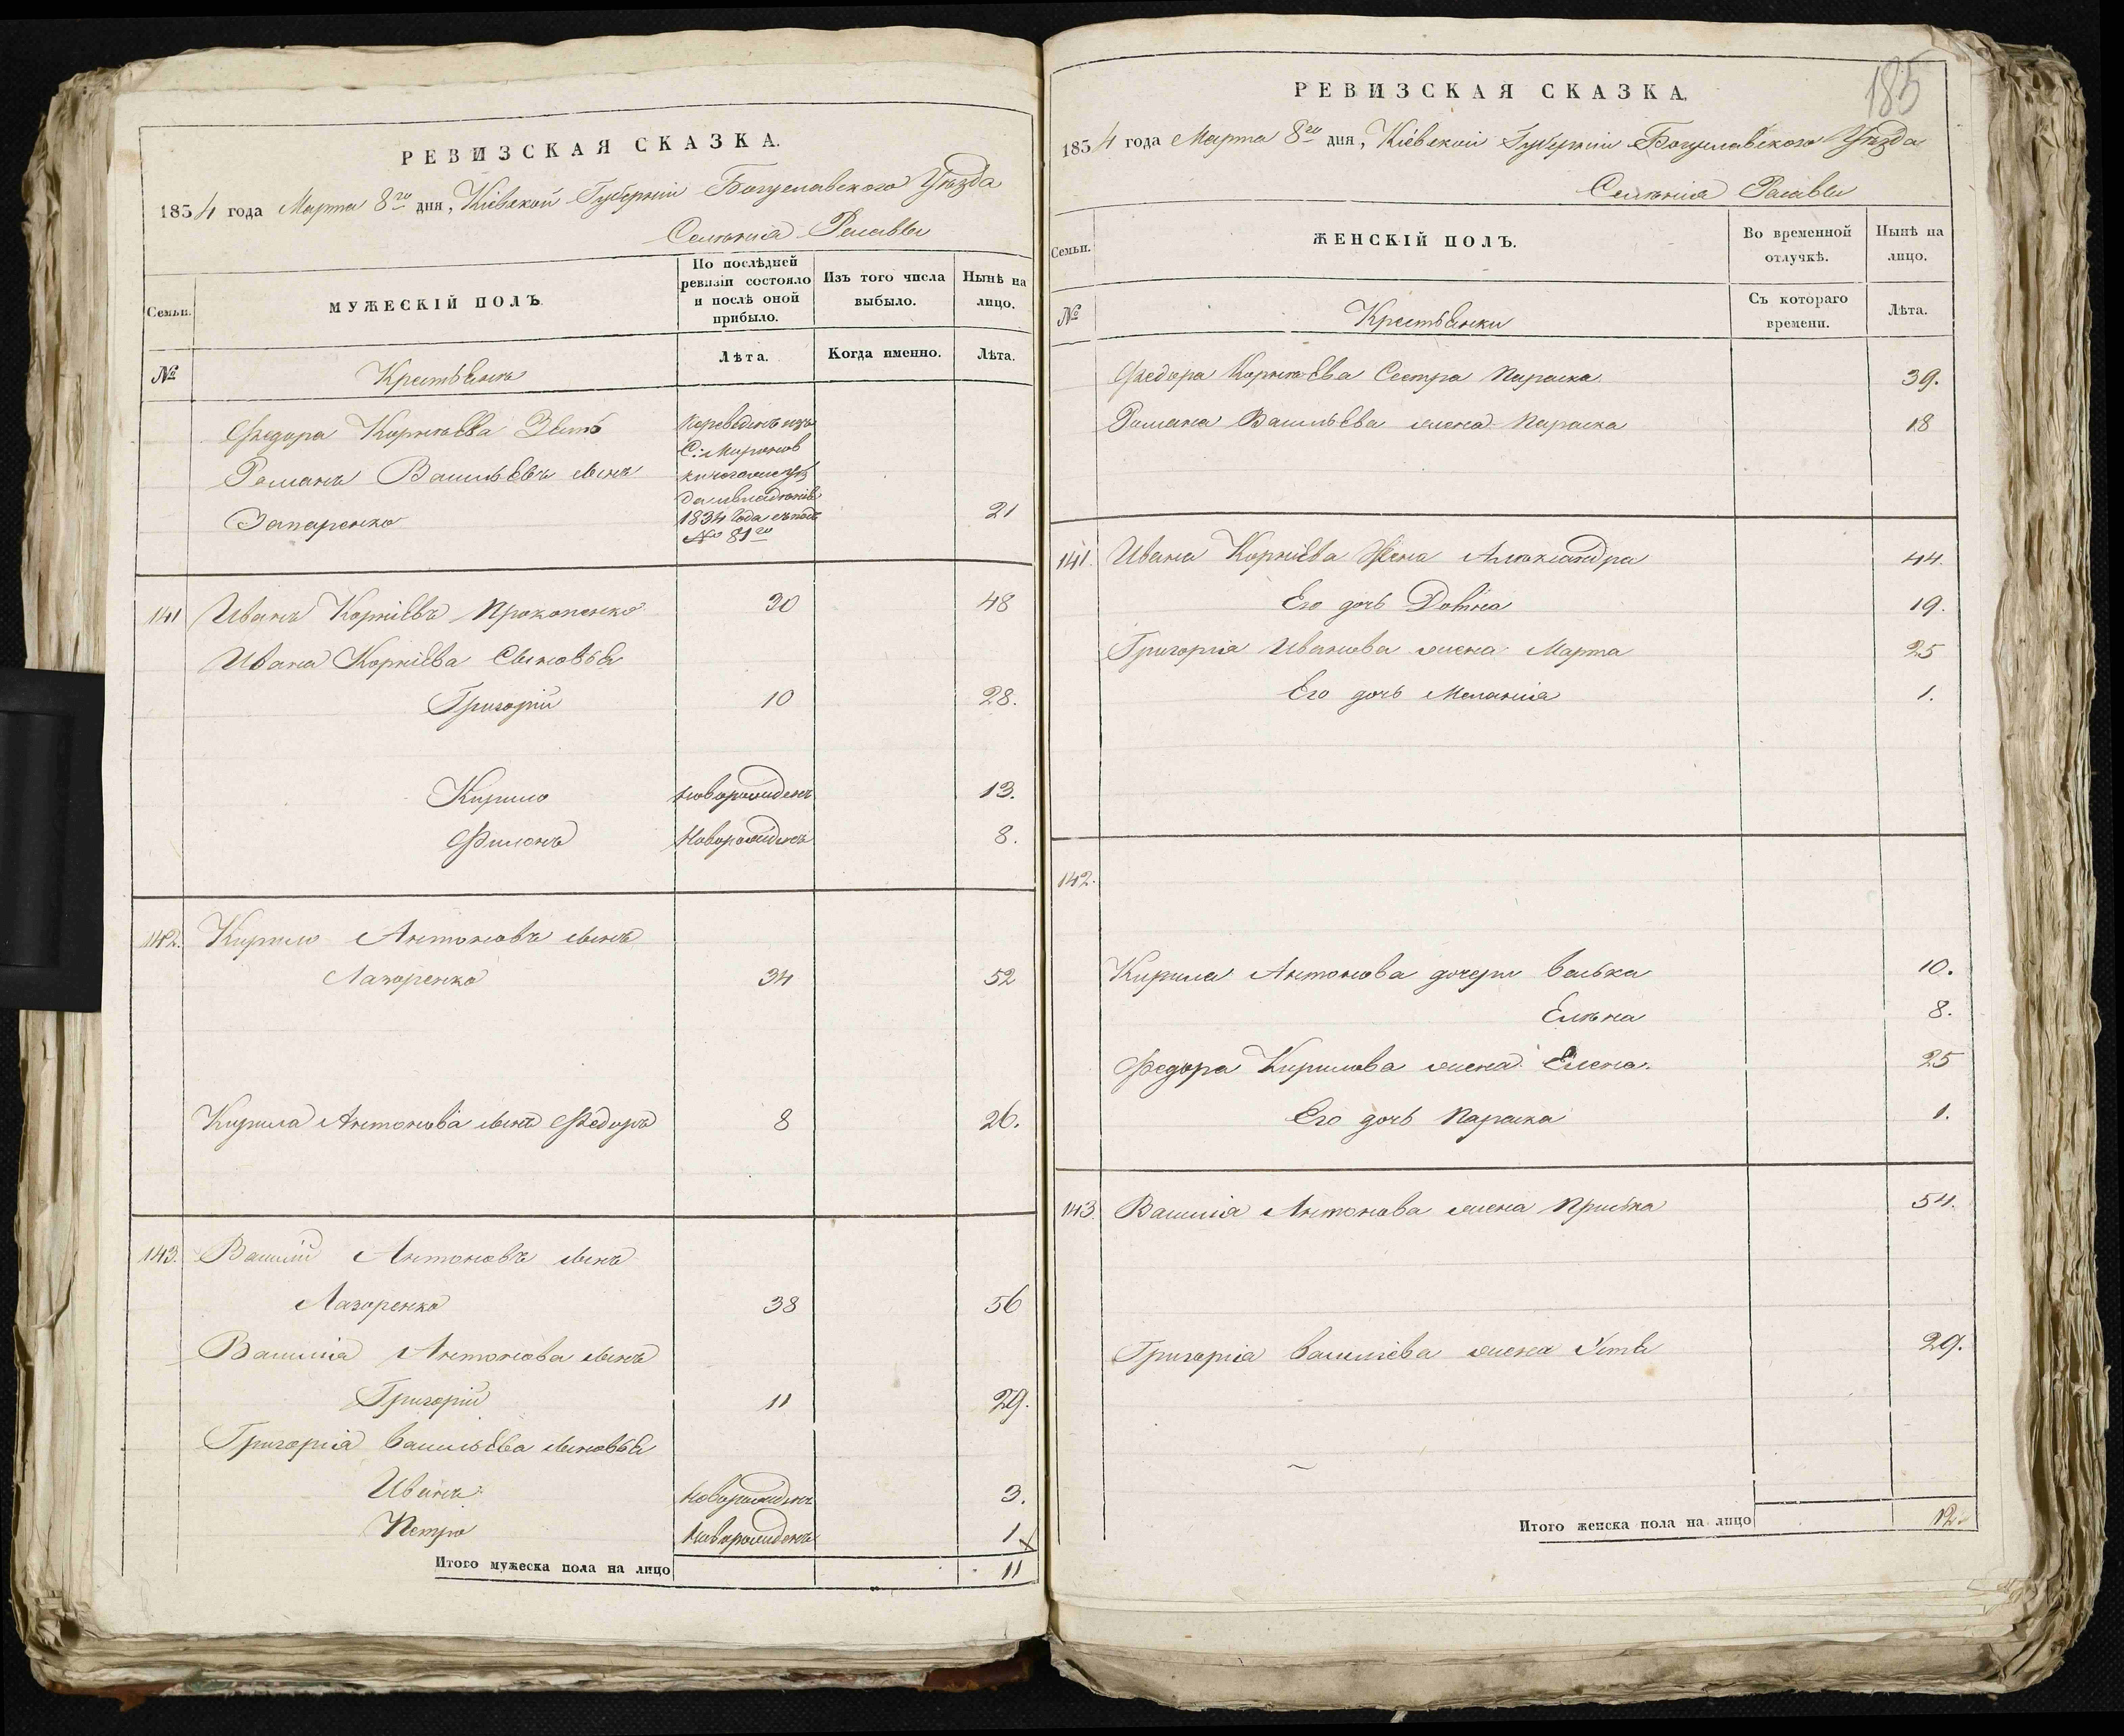 РЕВИЗСКАЯ СКАЗКА.
1854 года Марта 8го дня, Кіевской Губерніи Богуславского Уѣзда
Селенія Расавы
Семьи.
МУЖЕСКІЙ ПОЛЪ
По послѣдней ревизіи состояло и послѣ оной прибыло.
Изъ того числа выбыло.
Нынѣ на лицо.
№
Крестьянъ
Лѣта.
Когда именно.
Лѣта.
Федора Корнѣева Зять
Переведенъ изъ
С. Мироновки
Романъ Васильевъ сынъ
Запаренко 21
1834 года
№ 81го
141 Иванъ Корніевъ Прокопенко 30 48
Ивана Корніева Сыновья
Григорій 10 28.
Кирило новорожденъ 13.
Филонъ Новорожденъ 8.
142. Кирило Антоновъ сынъ
Лазоренко 34 52
Кирила Антонова сынъ Федоръ 8 26.
143. Василій Антоновъ сынъ
Лазоренко 38 56
Василія Антонова сынъ
Григорій 11 29.
Григорія Васильева сыновья
Иванъ Новорожденъ 3.
Петро Новорожденъ 1
Итого мужеска пола на лицо 11
185
РЕВИЗСКАЯ СКАЗКА.
1854 года Марта 8го дня, Кіевской Губерніи Богуславского Уѣзда
Селенія Расавы
Семьи.
ЖЕНСКІЙ ПОЛЪ.
Во временной отлучкѣ.
Нынѣ на лицо.
№
Крестьянки
Съ котораго времени.
Лѣта.
Федора Корнѣева Сестра Параска 39.
Романа Васильева жена Параска 18
141. Ивана Корніева Жена Александра 44.
Его дочь Домна 19.
Григорія Иванова жена Марта 25
Его дочь Меланія 1.
142.
Кирила Антонова дочери Васька 10.
Елена 8.
Федора Кирилова жена Елена. 25
Его дочь Параска 1.
143. Василія Антонова жена Приська 54.
Григорія Василіева жена 29.
Итого женска пола на лицо 12.